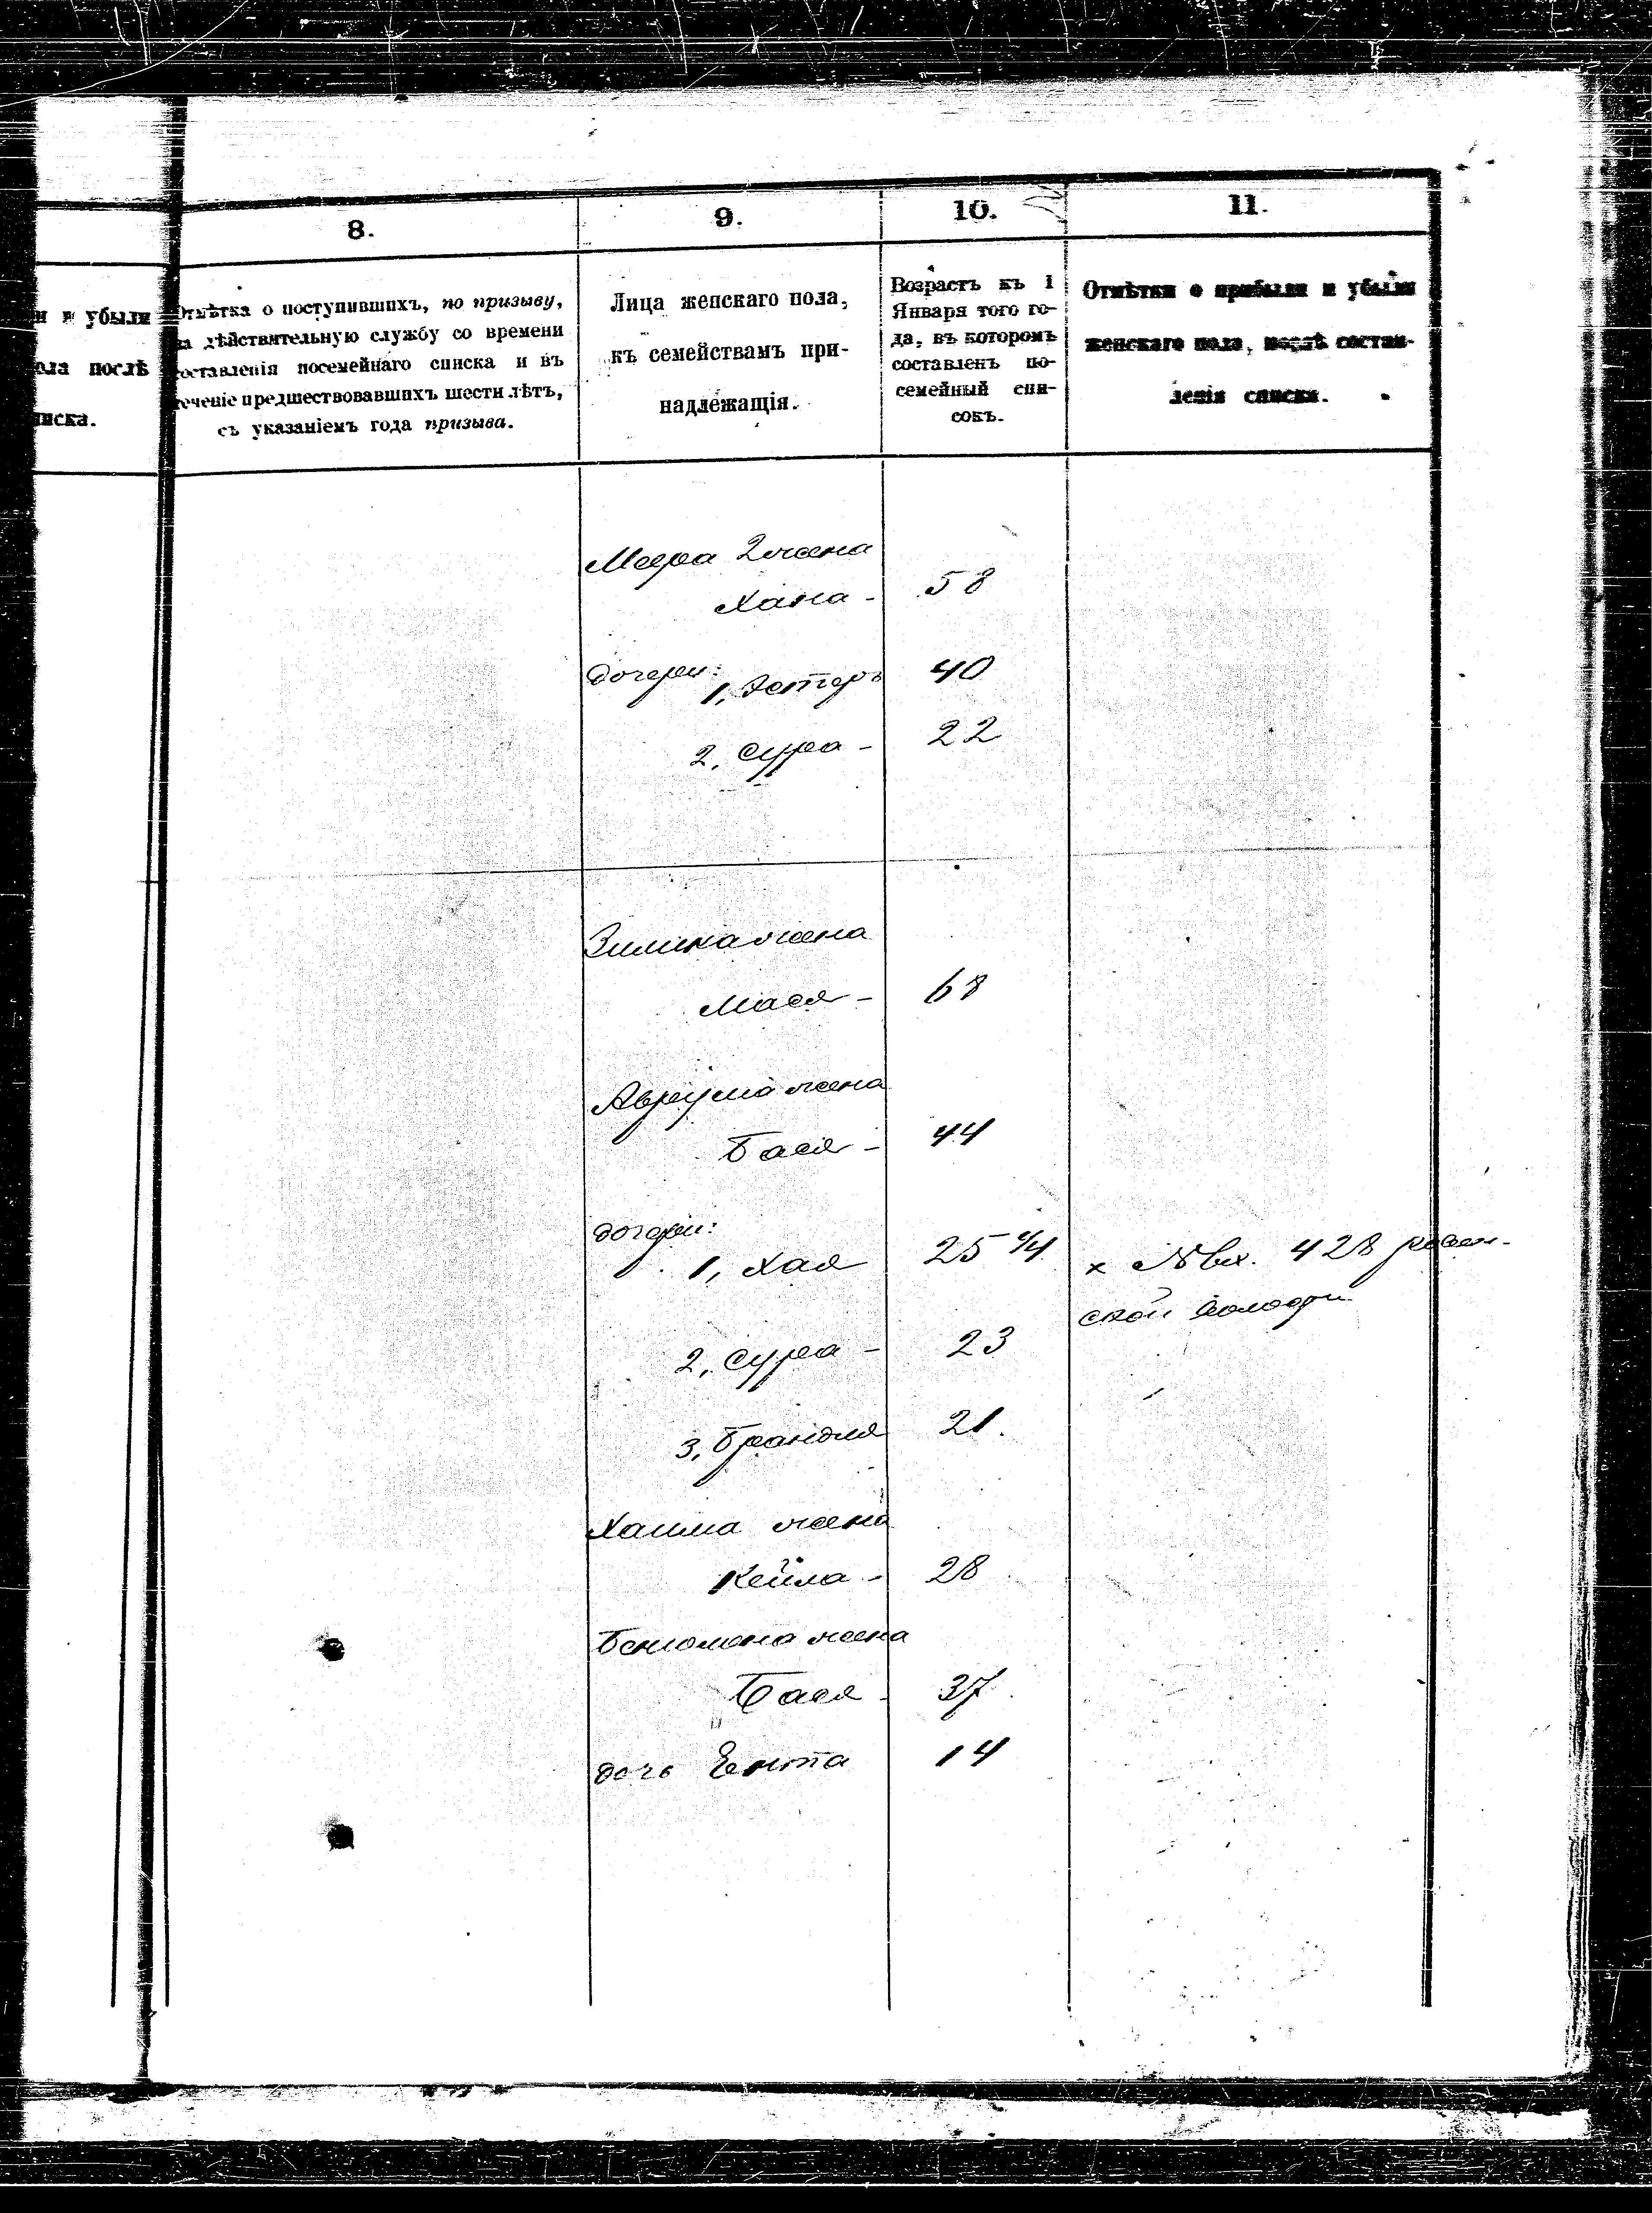 8.
9.
10.
11.
и и убыли
ола послѣ
писка.
Отмѣтка о поступившихъ, по призыву,
на дѣйствительную службу со времени
составленія посемейнаго списка и въ
теченіе предшествовавшихъ шести лѣтъ,
съ указаніемъ года призыва.
Лица женскаго пола,
къ семействамъ при-
надлежащія.
Возрастъ къ 1
Января того го-
да, въ которомъ
составленъ по-
семейный спи-
сокъ.
Отмѣтки о прибыли и убыли
женскаго пола, послѣ состав-
ленія списка.
Меера 2 жена
Хана - 58
дочери:
1, Эстеръ 40
2, Сура - 22
жена
Мася - 68
Аврума жена
Бася - 44
дочери:
1, Хая 25 х № вх. 428
ской
2, Сура - 23
3, Брандля 21.
Хаима жена
Кейла - 28
жена
Бася - 37
дочь Ента 14